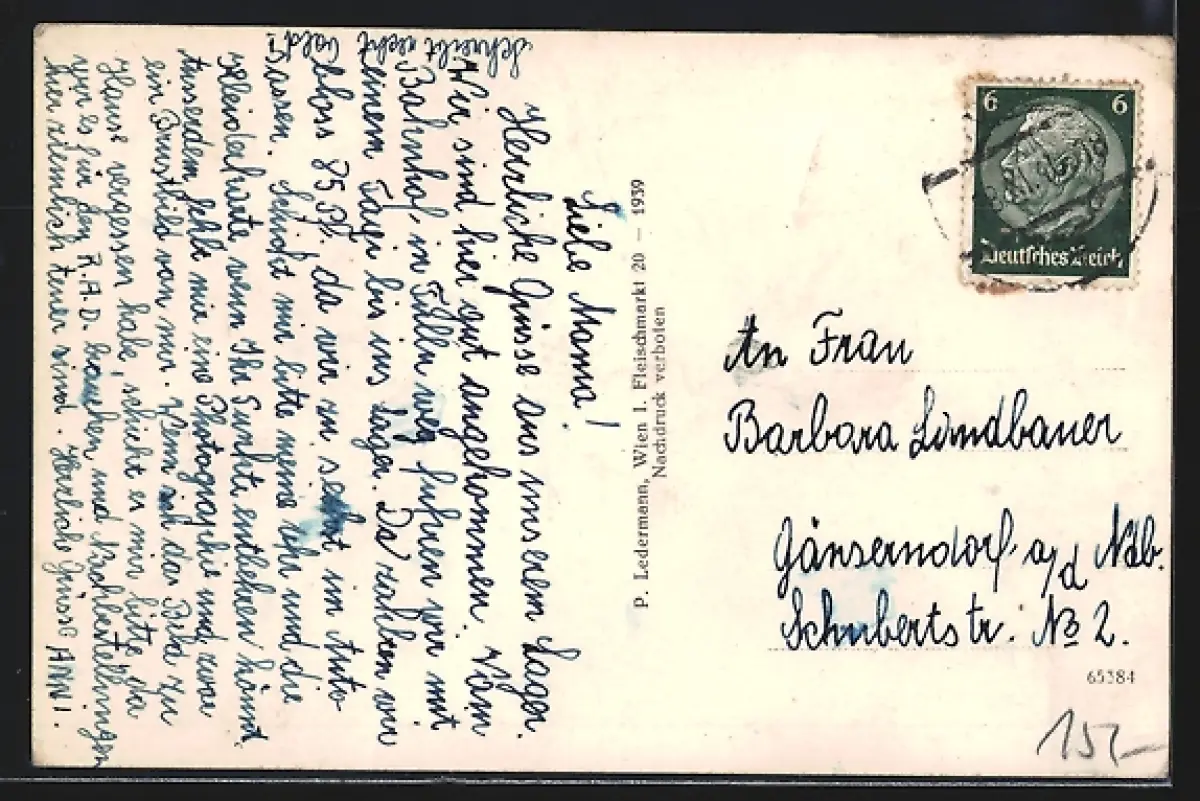 Liebe Mama!
Herrliche Grüsse aus unserem Lager.
Wir sind hier gut angekommen. Vom
Bahnhof in Tulln weg fuhren wir mit
einem Taxi bis ins Lager. Da zahlten wir
bloss 85 Pf. da wir zu sechst im Auto
sassen. Schickt mir bitte meine Uhr und die
Kleiderkarte, wenn Ihr Punkte entbehren könnt.
Ausserdem fehlt mir eine Photographie und zwar
ein Brustbild von mir. Wenn ich das Bild zu
Hause vergessen hab', schickt es mir bitte, da
wir es für den R.A.D. brauchen und Nachbestellungen
hier ziemlich teuer sind. Herzliche Grüsse ANNI.
Schreibt recht bald!
P. Ledermann, Wien I. Fleischmarkt 20 — 1939
Nachdruck verboten
6 6
Deutsches Reich
An Frau
Barbara Landbauer
Gänserndorf a/d Ndb.
Schubertstr. № 2.
65384
152-